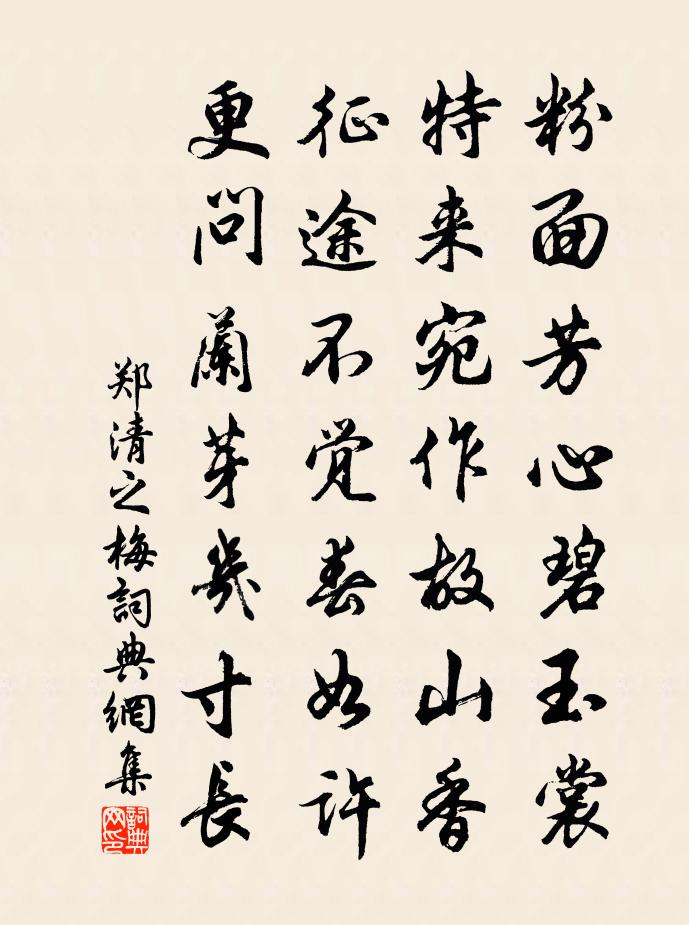 粉面芳心碧玉裳
特来宛作故山香
征途不觉春如许
更问蘭芽幾寸長
郑清之梅詞典網集
詞典网印